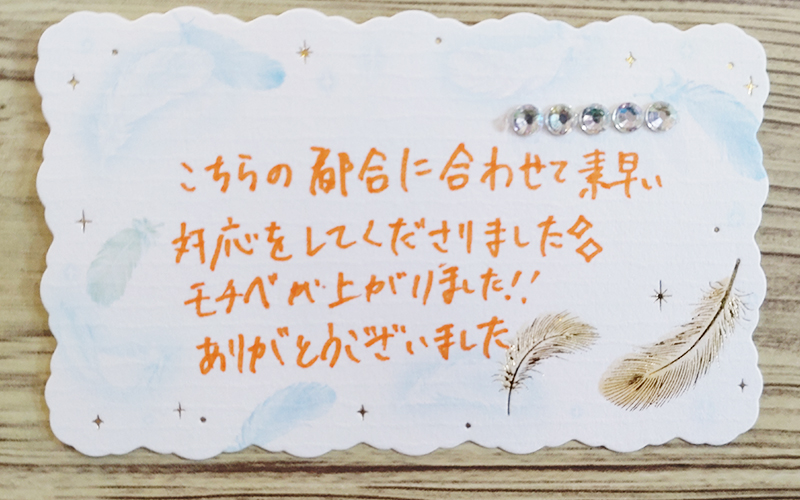 こちらの都合に合わせて素早い
対応をしてくださりました
モチベが上がりました!!
ありがとうございました